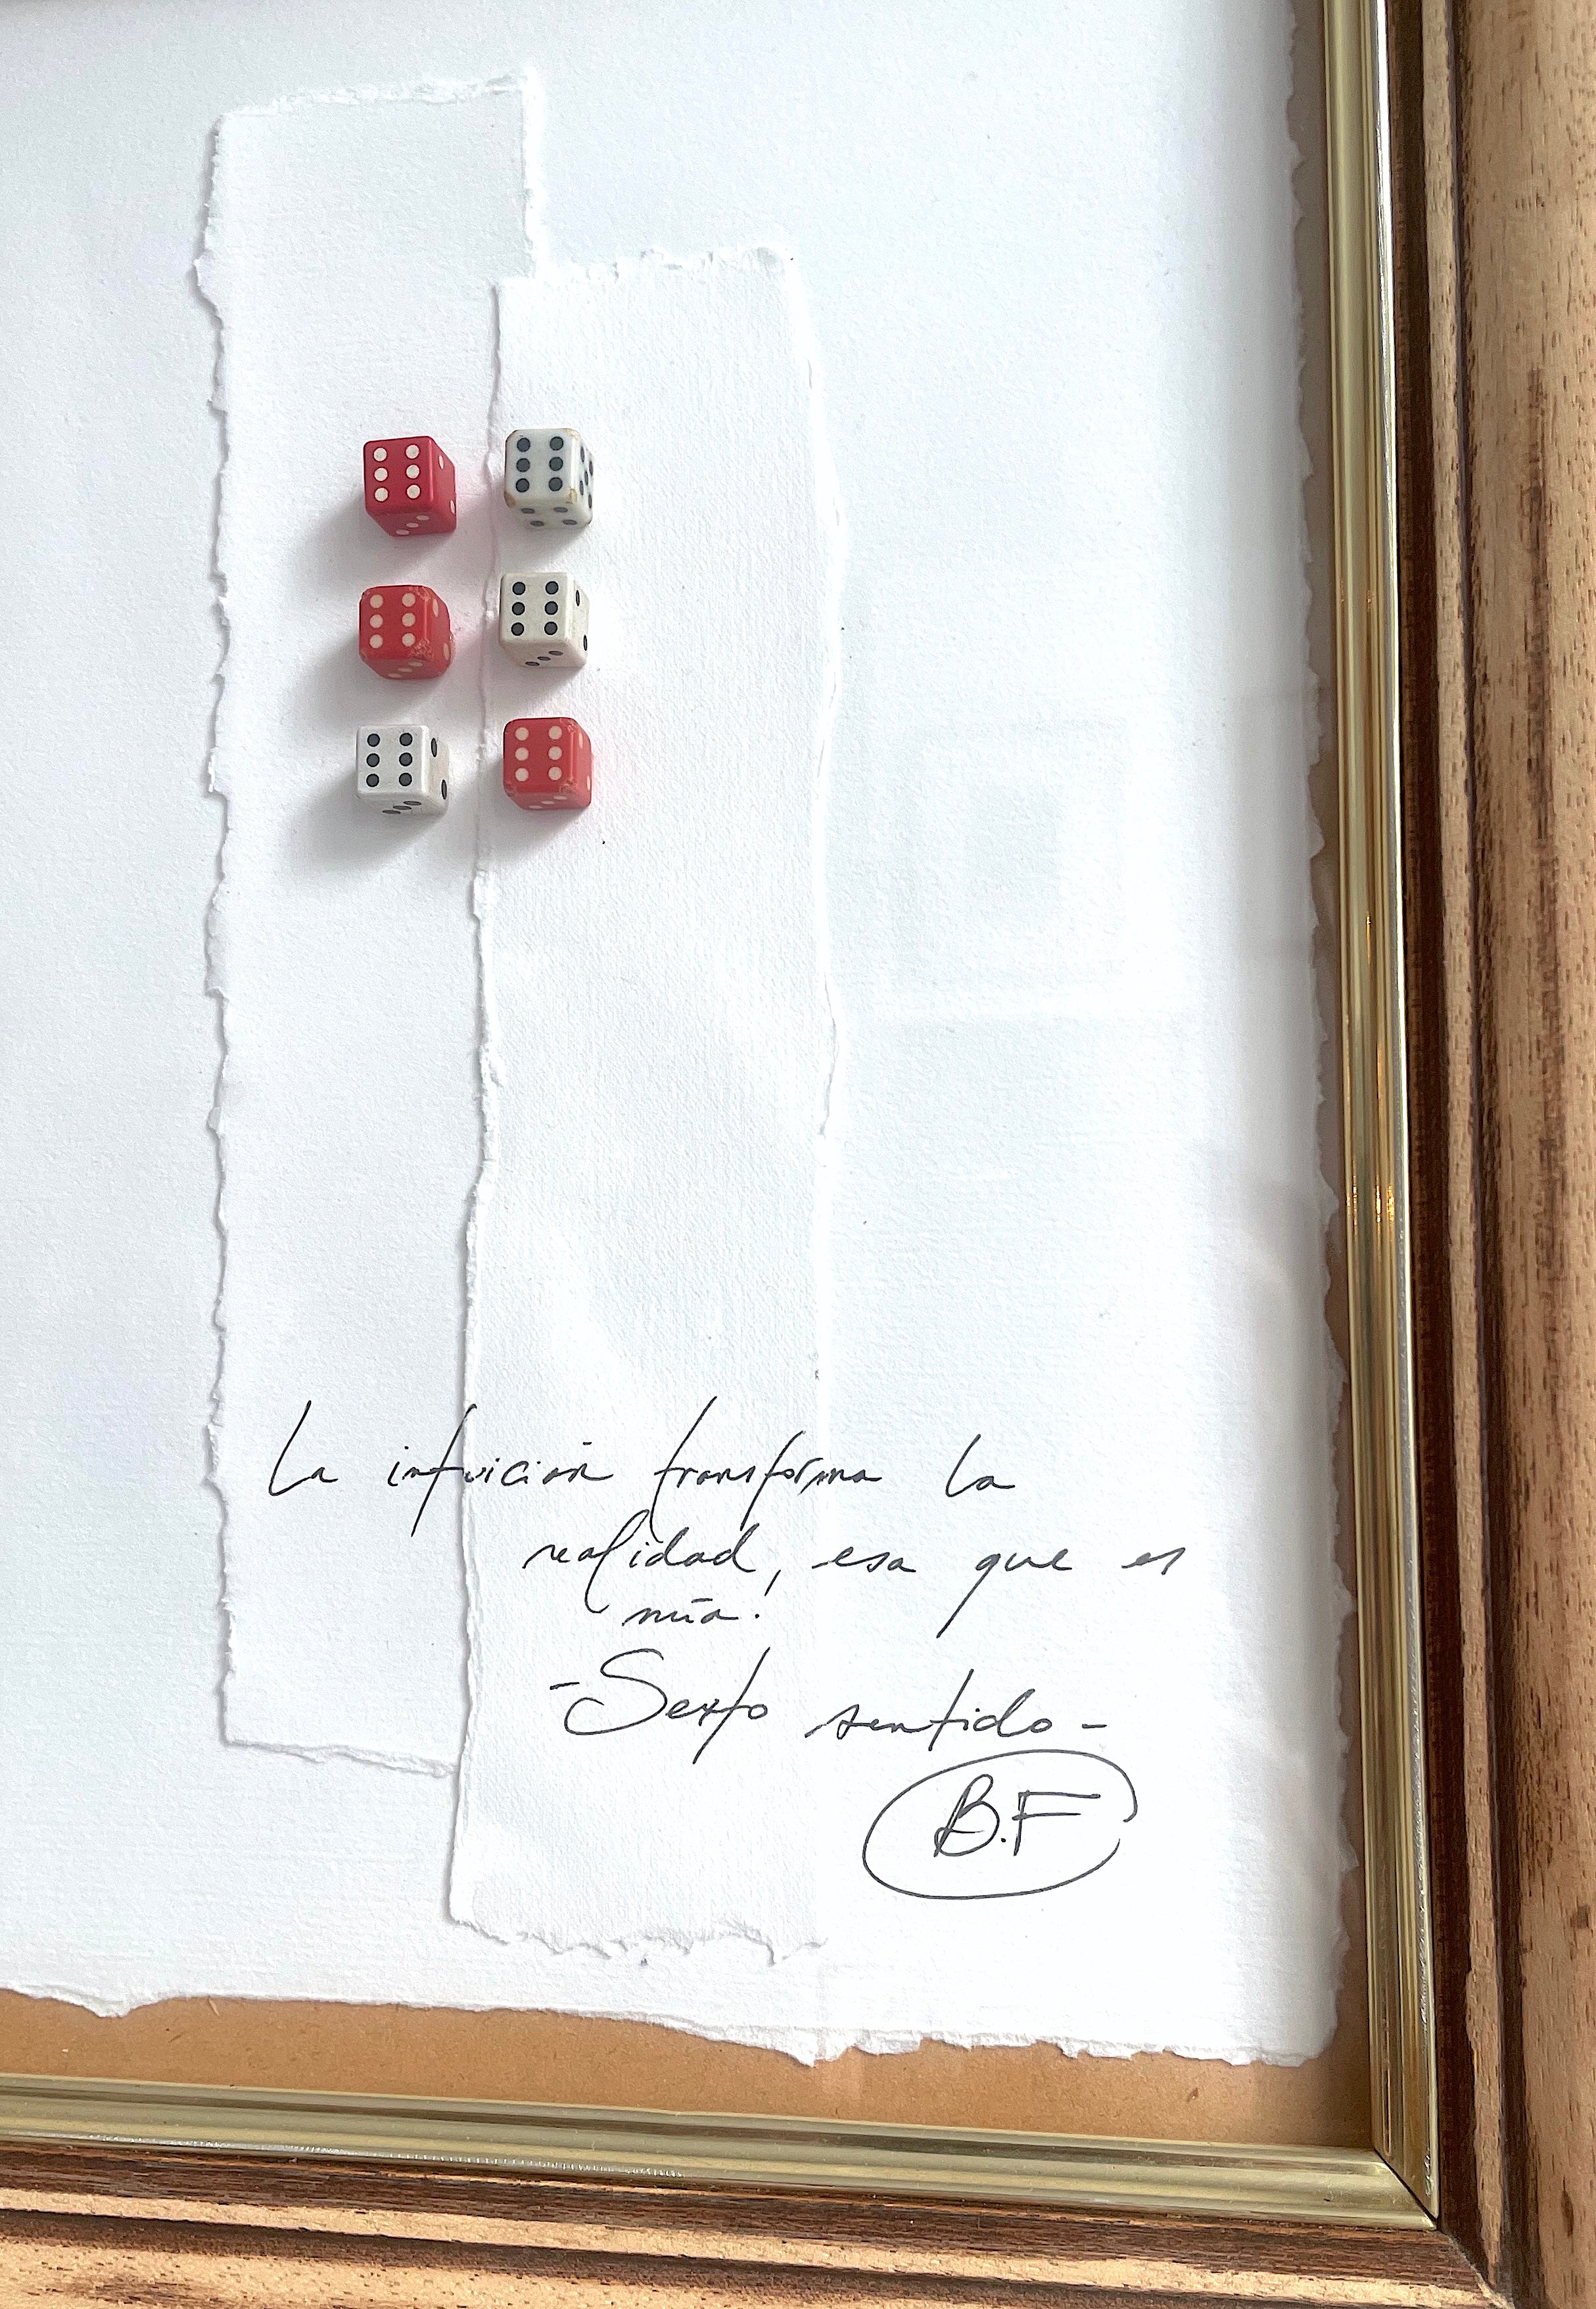 La intuición transforma la
realidad, esa que es
mía.
-Sexto sentido-
B.F